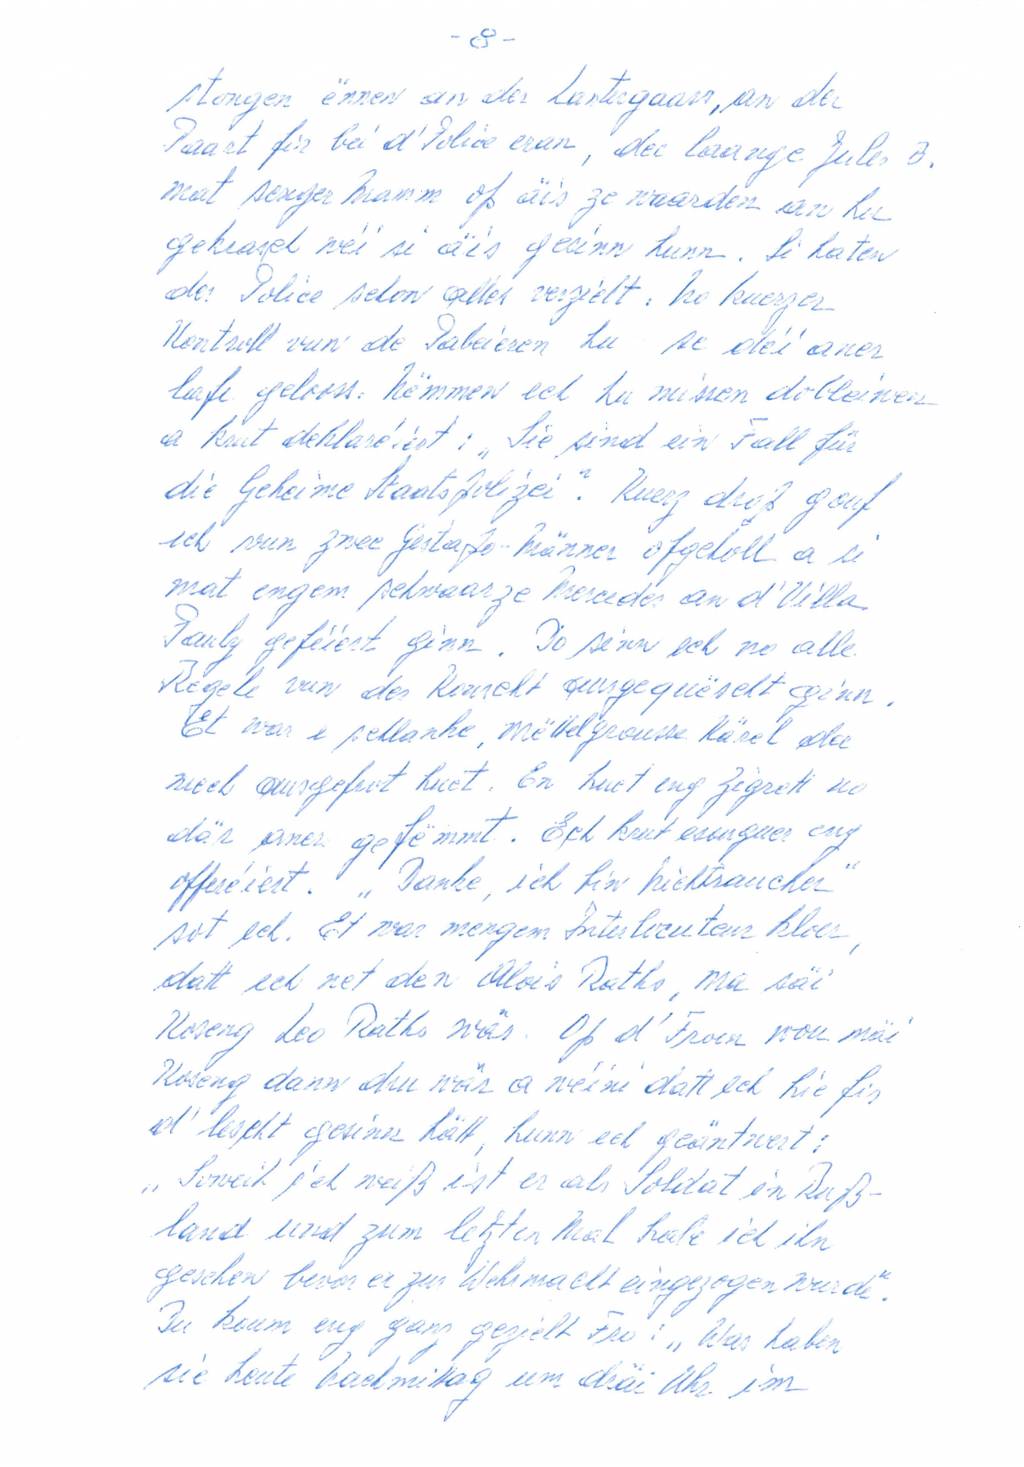 - 8 -
stongen ënnen an der Lantergaass, an der
Paart fir bei d'Police eran, dee laange Jules B.
mat senger Mamm op äis ze waarden an hu
gekrasch wéi si äis gesinn hunn. Si haten
der Police schon alles verzielt. No kuerzer
Kontroll vun de Pabeieren hu se déi aner
lafe gelooss. Nëmmen ech hu missen dobleiwen
a krut deklaréiert: „Sie sind ein Fall für
die Geheime Staatspolizei". Kuerz drop gouf
ech vun zwee Gestapo-Männer ofgeholl a si
mat engem schwaarze Mercedes an d'Villa
Pauly geféiert ginn. Do sinn ech no alle
Regele vun der Konscht ausgequëscht ginn.
Et war e schlanke, mëttelgrousse Kärel dee
mech ausgefrot huet. En huet eng Zigrett no
där aner gefëmmt. Ech krut esouguer eng
offréiert. „Danke, ich bin Nichtraucher"
sot ech. Et war mengem Interlocuteur kloer,
datt ech net den Alois Raths, ma säi
Koseng Leo Raths wär. Op d'Froen wou mäi
Koseng dann dru wär a wéini datt ech hie fir
d'lescht gesinn hätt, hunn ech geäntwert:
„Soweit ich weiß ist er als Soldat in Ruß-
land und zum letzten Mal habe ich ihn
gesehen bevor er zur Wehrmacht eingezogen wurde".
Du koum eng ganz gezielt Fro: „Was haben
sie heute Nachmittag um dräi Uhr im